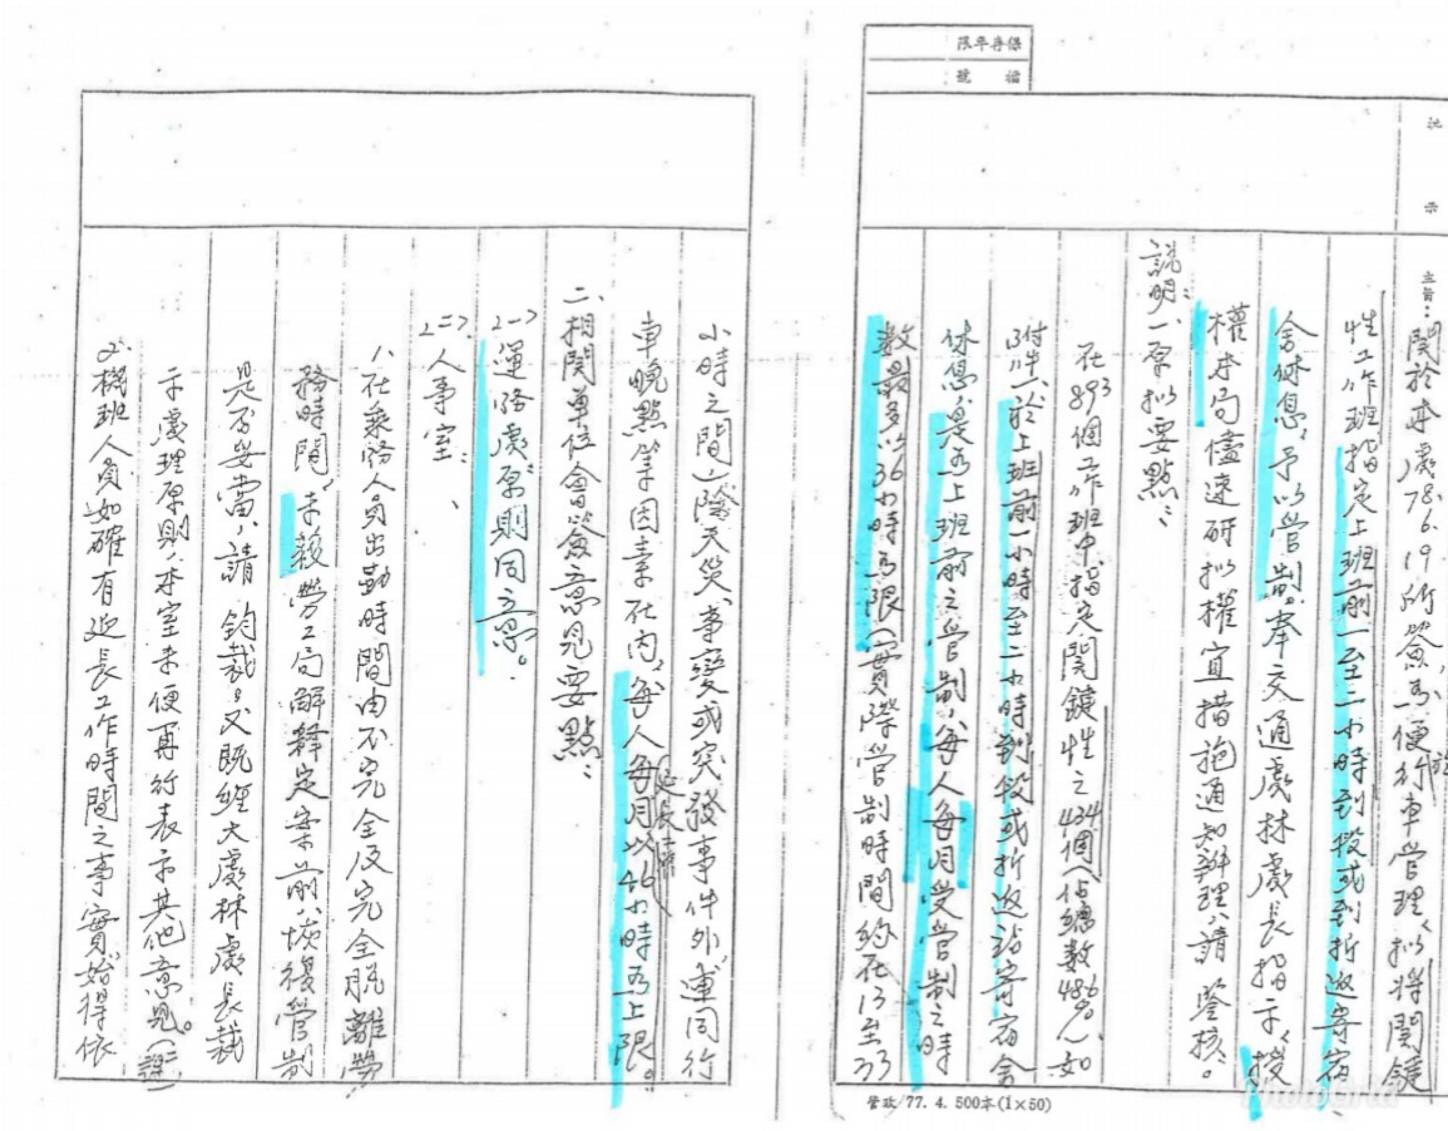 保存年限
檔號
批示
主旨：關於本處78.6.19所簽，為便於行車管理，擬將關鍵
性工作班指定上班前一至二小時到段或到折返寄宿
舍休息，予以管制。奉交通處林處長指示，授
權本局儘速研拟權宜措施通知辦理，請 鑒核。
說明：一、原拟要點：
在893個工作班中指定關鍵性之434個(佔總數48.6%)、如
附件一，於上班前一小時至二小時到段或折返站寄宿舍
休息，是為上班前之管制，每人每月受管制之時
數最多以36小時為限(實際管制時間約在13至33
管政77. 4. 500本(1×50)
小時之間)除天災、事變或突發事件外，連同行
車晚點等因素在內，每人每月延長工時以46小時為上限。
二、相關單位會簽意見要點：
(一)運務處原則同意。
(二)人事室：
1、在乘務人員出勤時間由不完全及完全脫離勞
務時間，未報勞工局解釋定案前，恢復管制
是否妥當，請 鈞裁，又既經大處林處長裁
示處理原則，本室未便再行表示其他意見。
2、機班人員如確有延長工作時間之事實，始得依